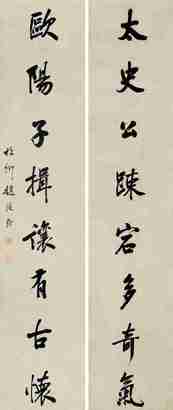 太史公疎宕多奇氣
歐陽子揖讓有古懷